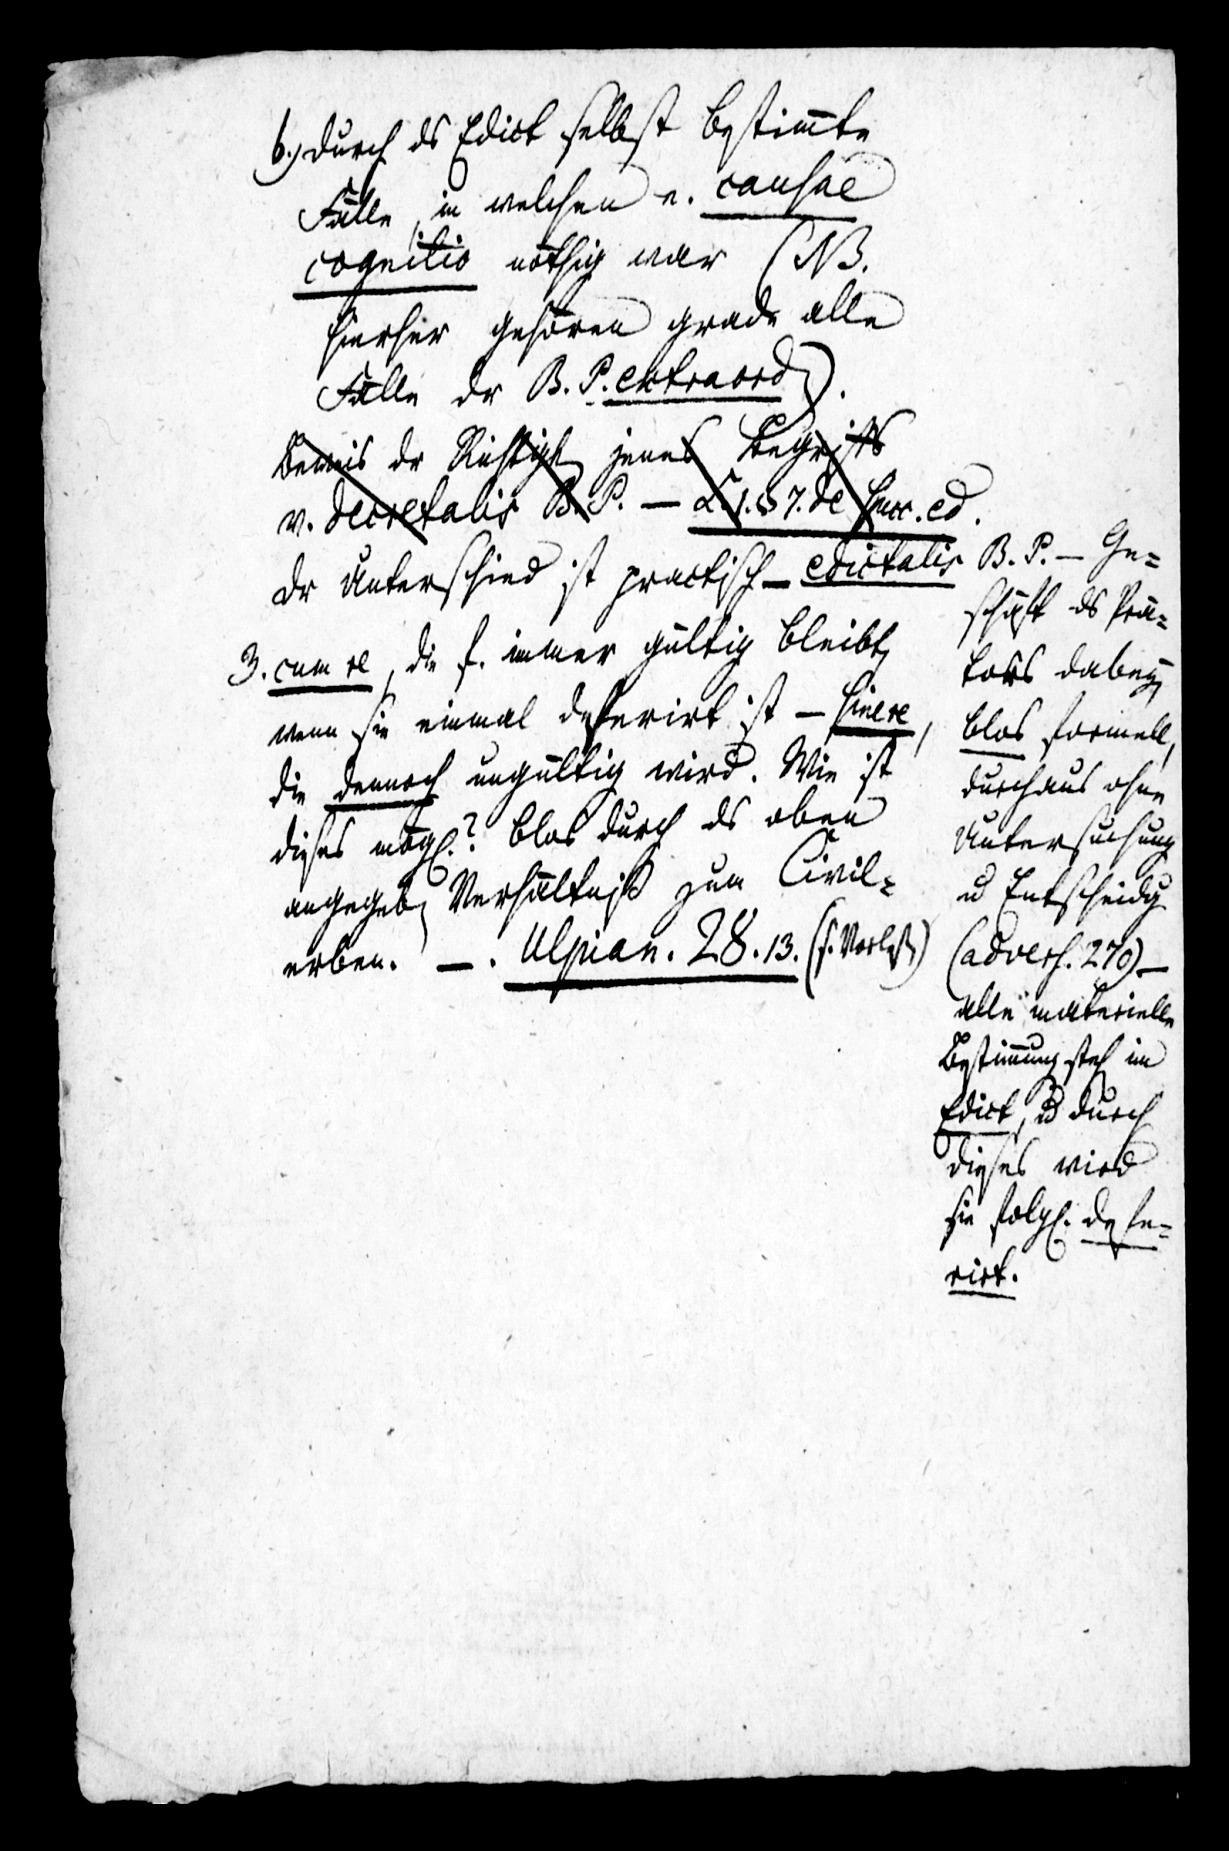 b.) durch ds Edict selbst bestim̄te
Fälle, in welchen e. causae
cognitio nöthig war (NB.
hierher gehören grade alle
Fälle dr B. P. extraord).
Beweis dr Richtigk jenes Begriffs
v. decretalis B. P. — L. 1. § 7. de succ. ed.
dr Unterschied ist practisch — edictalis B. P. — Ge=
schäft ds Prä=
tors dabey
blos formell,
durchaus ohne
Untersuchung
u Entscheidg
(advers. 270) —
alle materielle
Bestim̄ung steh im
Edict, u durch
dieses wird
sie folgl. defe=
rirt.
3. cum re, die f. immer gültig bleibt,
wenn sie einmal deferirt ist — sine re,
die dennoch ungültig wird. Wie ist
dieses mögl.? blos durch ds oben
angegeb Verhältniß zum Civil=
erben. —. Ulpian. 28. 13. (s. Vorles)